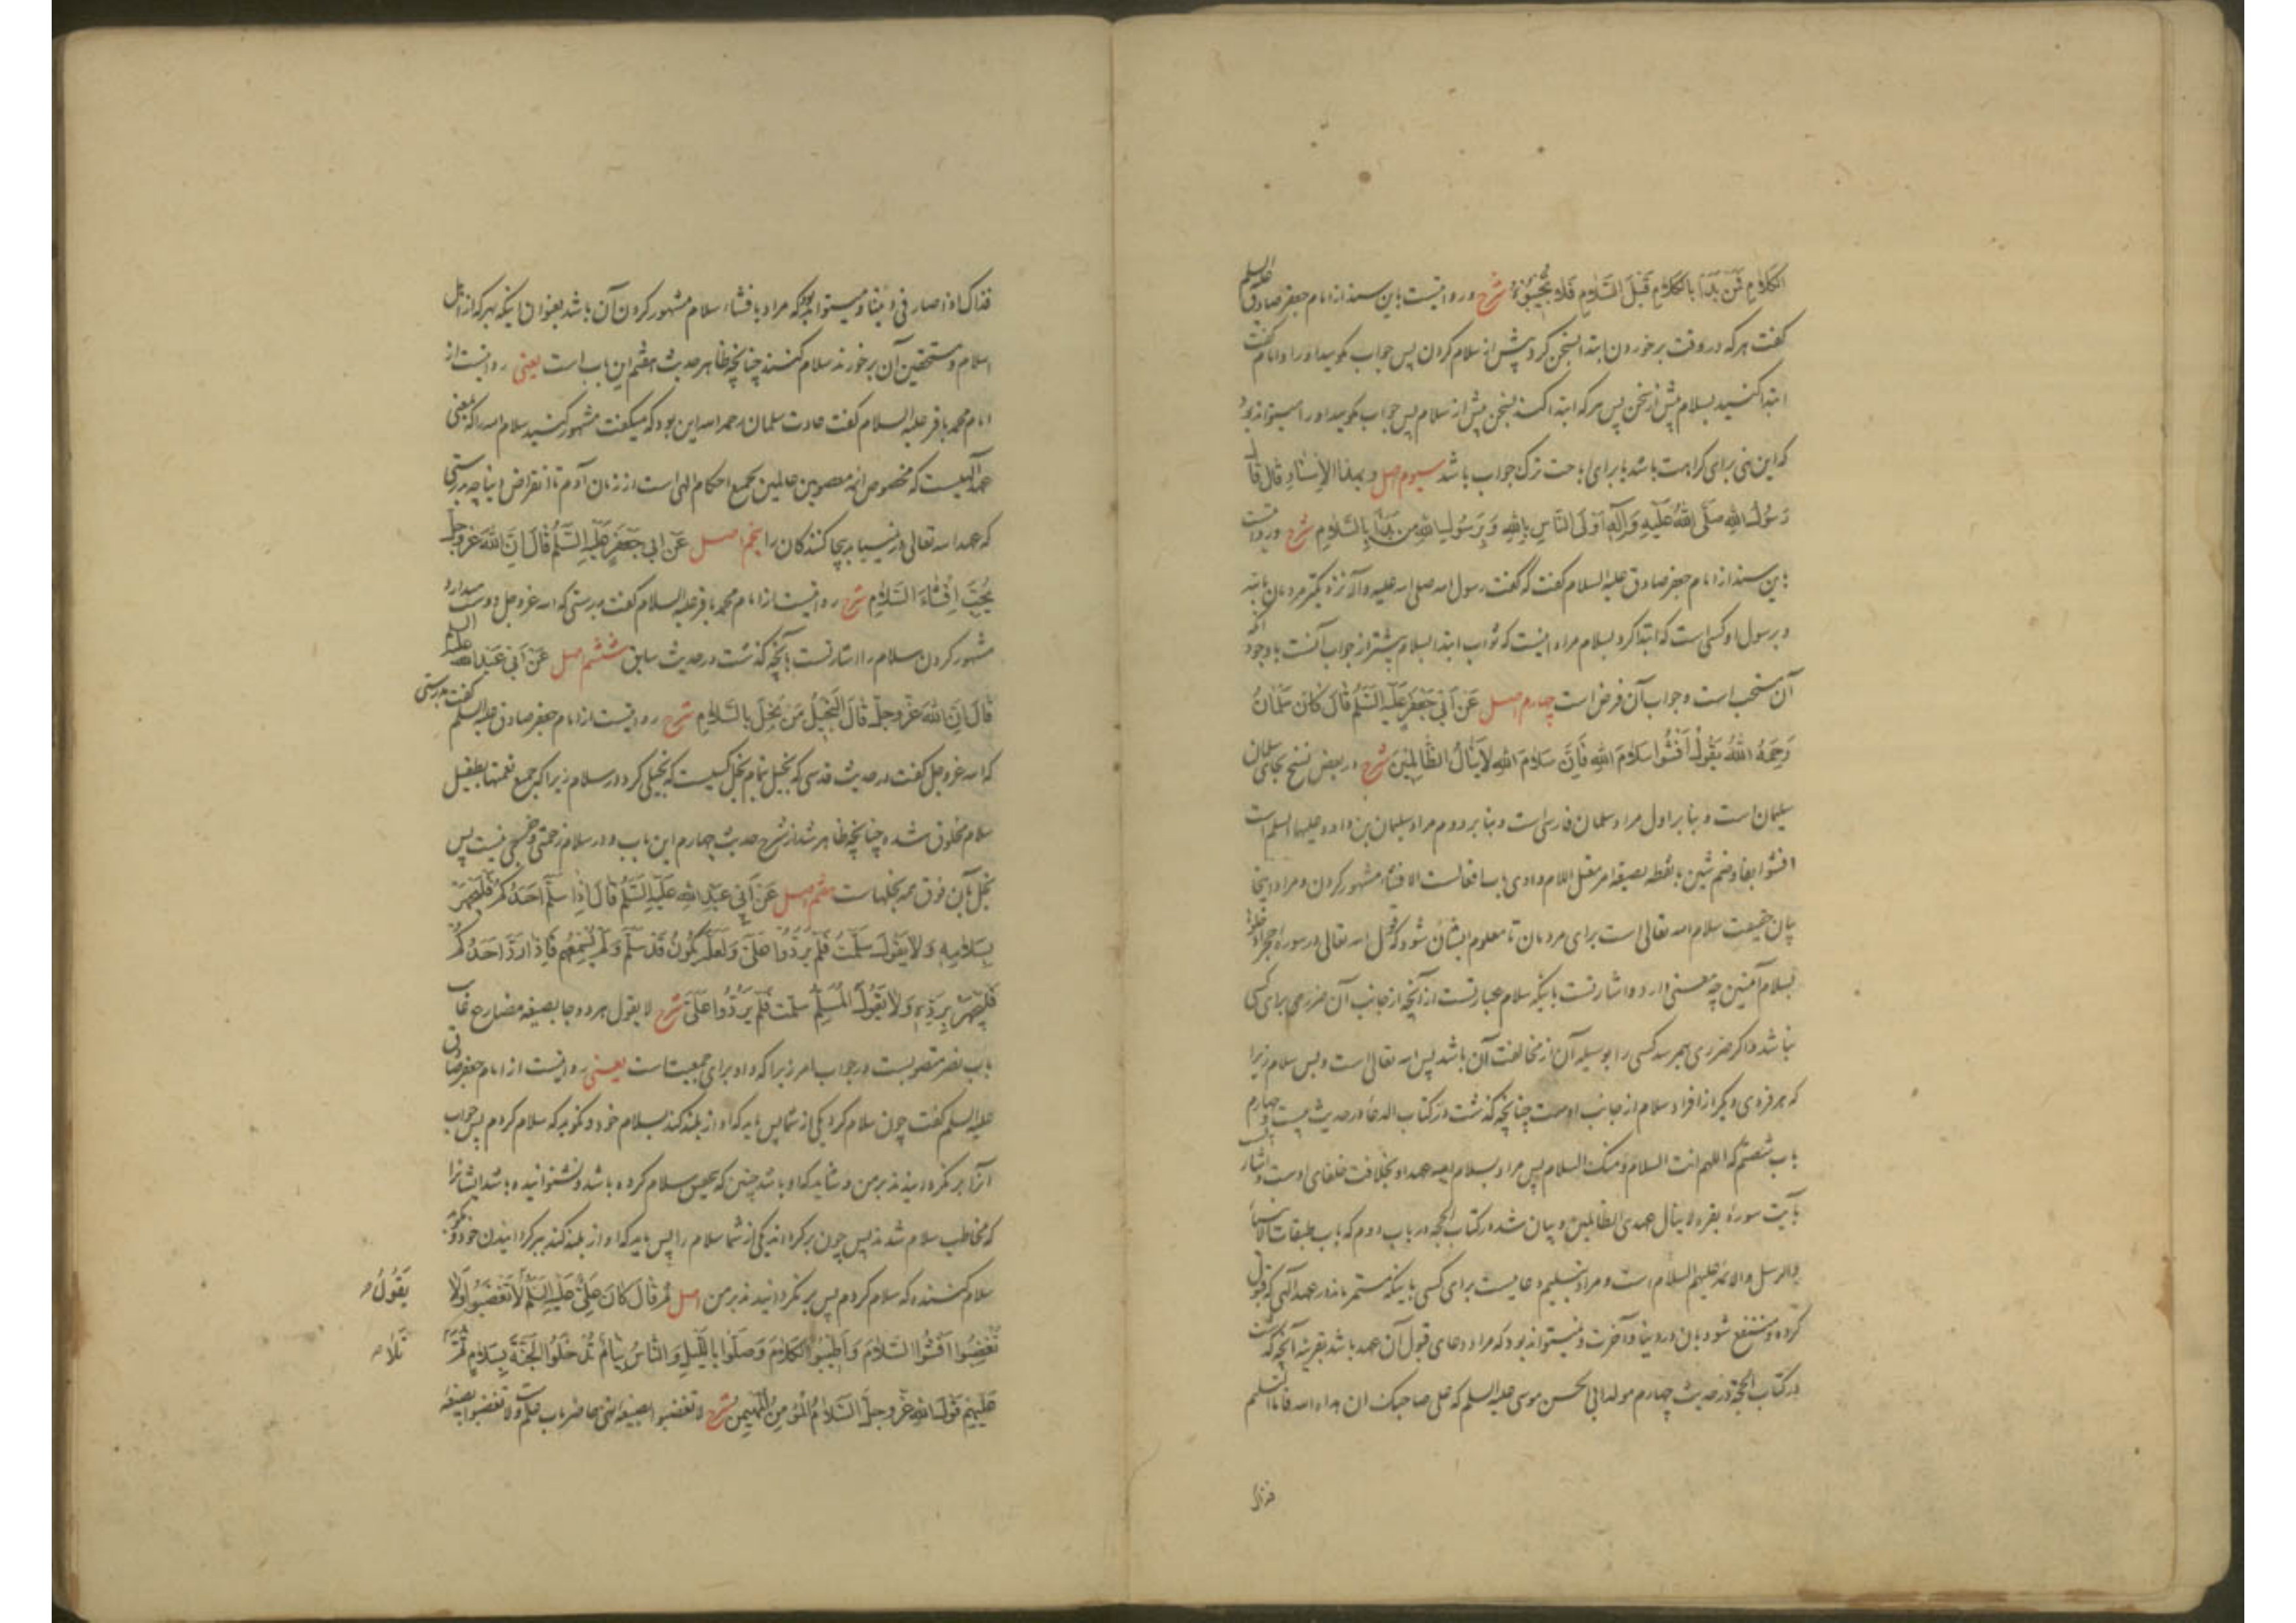 الْکَلَامِ فَمَنْ بَدَأَ بِالْکَلَامِ قَبْلَ السَّلَامِ فَلَا تُجِیبُوهُ شرح و روایتست باین سند از امام جعفر صادق علیه السلم
گفت هر که در وقت برخوردن ابتدا بسخن کرد پیش از سلام کردن پس جواب مگویید او را و امام گفت
ابتدا کنید بسلام پیش از سخن پس هر که ابتدا کند بسخن پیش از سلام پس جواب مگویید او را میتواند بود
که این نهی برای کراهت باشد یا برای اباحت ترک جواب باشد سیوم اصل و بهذا الاِسْنَادِ قالَ قالَ
رَسُولُ اللهِ صَلَّی اللهُ عَلَیْهِ وَآلِهِ اَوْلَی النَّاسِ بِاللهِ وَ بِرَسُولِهِ مَن بَدَأَ بِالسَّلَامِ شرح و روایتست
باین سند از امام جعفر صادق علیه السلام گفت که گفت رسول الله صلی الله علیه وآله نزدیکتر مردمان بالله
و برسول او کسی است که ابتدا کرد بسلام مراد اینست که ثواب ابتدا بسلام بیشتر از جواب آنست با وجود آنکه
آن مستحب است و جواب آن فرض است چهارم اصل عَنْ اَبی جَعْفَرٍ عَلَیْهِ السَّلَمُ قالَ کانَ سَلْمانُ
رَحِمَهُ اللهُ یَقُولُ اَفْشُوا سَلَامَ اللهِ فَاِنَّ سَلَامَ اللهِ لَا یَنَالُ الظَّالِمِینَ شرح در بعض نسخ بجای سلمان
سلیمان است و بنابر اول مراد سلمان فارسی است و بنابر دوم مراد سلیمان بن داود علیهما السلم است
افشوا بفا و ضم شین با نقطه بصیغه امر معتل اللام واوی باب افعالست الافشاء مشهور کردن و مراد اینجا
بیان حقیقت سلام الله تعالی است برای مردمان تا معلوم ایشان شود که قول الله تعالی در سورۀ حجر ادخلوها
بسلام آمنین چه معنی دارد و اشارتست باینکه سلام عبارتست از آنچه از جانب آن ضرری برای کسی
نباشد و اگر ضرری بهر سد کسی را بوسیله آن از مخالفت آن باشد پس الله تعالی است و بس سلام زیرا
که هر فردی دیگر از افراد سلام از جانب اوست چنانچه گذشت در کتاب الدعا در حدیث بیست و چهارم
باب شصتم که اللهم انت السلام و منک السلام پس مراد بسلام الله عهد او بخلافت خلفای اوست و اشارتست
بآیت سورۀ بقره لا ینال عهدی الظالمین و بیان شد در کتاب الحجه در باب دوم که باب طبقات الانبیاء
والرسل والائمه علیهم السلام است و مراد بتسلیم دعاییست برای کسی باینکه مستمر ماند در عهد الهی که قبول
کرده و منتفع شود بان در دنیا و آخرت و میتواند بود که مراد دعای قبول آن عهد باشد بقرینه آنچه گذشت
در کتاب الحجة در حدیث چهارم مولد ابی الحسن موسی علیه السلم که علی صاحبک ان هداه الله فاما التسلیم
فذاک اذا صار فی دیننا و میتواند بود که مراد بافشاء سلام مشهور کردن آن باشد بعنوان اینکه بهر که از اهل
اسلام و مستحقین آن برخورند سلام کنند چنانچه ظاهر حدیث هفتم این باب است یعنی روایتست از
امام محمد باقر علیه السلام گفت عادت سلمان رحمه الله این بود که میگفت مشهور کنید سلام الله را که بمعنی
عهد الهیست که مخصوص ائمه معصومین عالمین بجمیع احکام الهی است از زمان آدم تا انقراض دنیا چه بدرستی
که عهد الله تعالی در نمییابد بیجا کنندگان را پنجم اصل عَنْ اَبی جَعْفَرٍ عَلَیْهِ السَّلَمُ قَالَ اِنَّ اللهَ عَزَّ وَجَلَّ
یُحِبُّ اِفْشَاءَ السَّلَامِ شرح روایتست از امام محمد باقر علیه السلام گفت بدرستی که الله عز و جل دوست میدارد
مشهور کردن سلام را اشارتست بآنچه گذشت در حدیث سابق ششم اصل عَنْ اَبی عَبْدِ اللهِ علیه السلم
قَالَ اِنَّ اللهَ عَزَّ وَجَلَّ قَالَ الْبَخِیلُ مَنْ بَخِلَ بِالسَّلَامِ شرح روایتست از امام جعفر صادق علیه السلم گفت بدرستی
که الله عز و جل گفت در حدیث قدسی که بخیل تمام بخل کسیست که بخیلی کرد در سلام زیرا که جمیع نعمتها بطفیل
سلام مخلوق شده چنانچه ظاهر شد از شرح حدیث چهارم این باب و در سلام زحمتی و خرجی نیست پس
بخل بآن فوق همه بخلهاست هفتم اصل عَنْ اَبی عَبْدِ اللهِ عَلَیْهِ السَّلَمُ قَالَ اِذَا سَلَّمَ اَحَدُکُمْ فَلْیَجْهَرْ
بِسَلَامِهِ وَ لَا یَقُولُ سَلَّمْتُ فَلَمْ یَرُدُّوا عَلَیَّ وَ لَعَلَّهُ یَکُونُ قَدْ سَلَّمَ وَ لَمْ یُسْمِعْهُمْ فَاِذَا رَدَّ اَحَدُکُمْ
فَلْیَجْهَرْ بِرَدِّهِ وَ لَا یَقُولُ الْمُسَلِّمُ سَلَّمْتُ فَلَمْ یَرُدُّوا عَلَیَّ شرح لا یقول هر دو جا بصیغه مضارع غایب
باب نصر منصوبست در جواب امر زیرا که واو برای جمعیت است یعنی روایتست از امام جعفر صادق
علیه السلم گفت چون سلام کرد یکی از شما پس باید که آواز بلند کند بسلام خود و نگوید که سلام کردم پس جواب
آنرا بر نگردانیدند بر من و شاید که او باشد چنین که بحقیقت سلام کرده باشد و نشنوانیده باشد ایشانرا
که مخاطب سلام شدند پس چون برگرداند یکی از شما سلام را پس باید که آواز بلند کند ببرگردانیدن خود و نگوید
سلام کننده که سلام کردم پس بر نگردانیدند بر من اصل ثُمَّ قَالَ کَانَ عَلِیٌّ عَلَیْهِ السَّلَمُ یَقُولُ لَا تَغْضَبُوا وَ لَا
تُغْضِبُوا اَفْشُوا السَّلَامَ وَ اَطِیبُوا الْکَلَامَ وَ صَلُّوا بِاللَّیْلِ وَ النَّاسُ نِیَامٌ تَدْخُلُوا الْجَنَّةَ بِسَلَامٍ ثُمَّ تَلَا
عَلَیْهِمْ قَوْلَ اللهِ عَزَّ وَجَلَّ السَّلَامُ الْمُؤْمِنُ الْمُهَیْمِنُ شرح لا تغضبوا بصیغه نهی حاضر باب علم و لا تغضبوا بصیغه